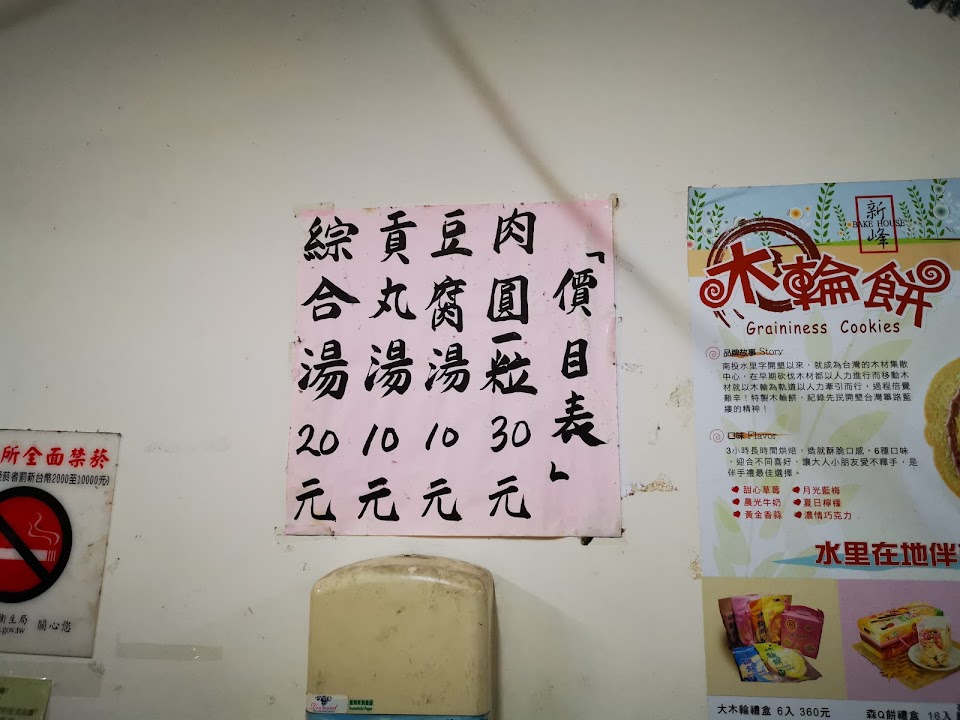 「價目表」
肉圓一粒30元
豆腐湯10元
貢丸湯10元
綜合湯20元
所全面禁菸
者罰新台幣2000至10000元
衛生局 關心您
.gov.tw
新峰
BAKE HOUSE
木輪餅
Graininess Cookies
品牌故事 Story
南投水里字開墾以來，就成為台灣的木材集散
中心，在早期砍伐木材都以人力進行而移動木
材就以木輪為軌道以人力牽引而行，過程倍覺
艱辛！特製木輪餅，紀錄先民開墾台灣篳路藍
縷的精神！
口味 Flavor
3小時長時間烘焙，造就酥脆口感，6種口味
，迎合不同喜好，讓大人小朋友愛不釋手，是
伴手禮最佳選擇。
甜心草莓
月光藍梅
晨光牛奶
夏日檸檬
黃金香蒜
濃情巧克力
水里在地伴
大木輪禮盒 6入 360元
森Q餅禮盒 16入